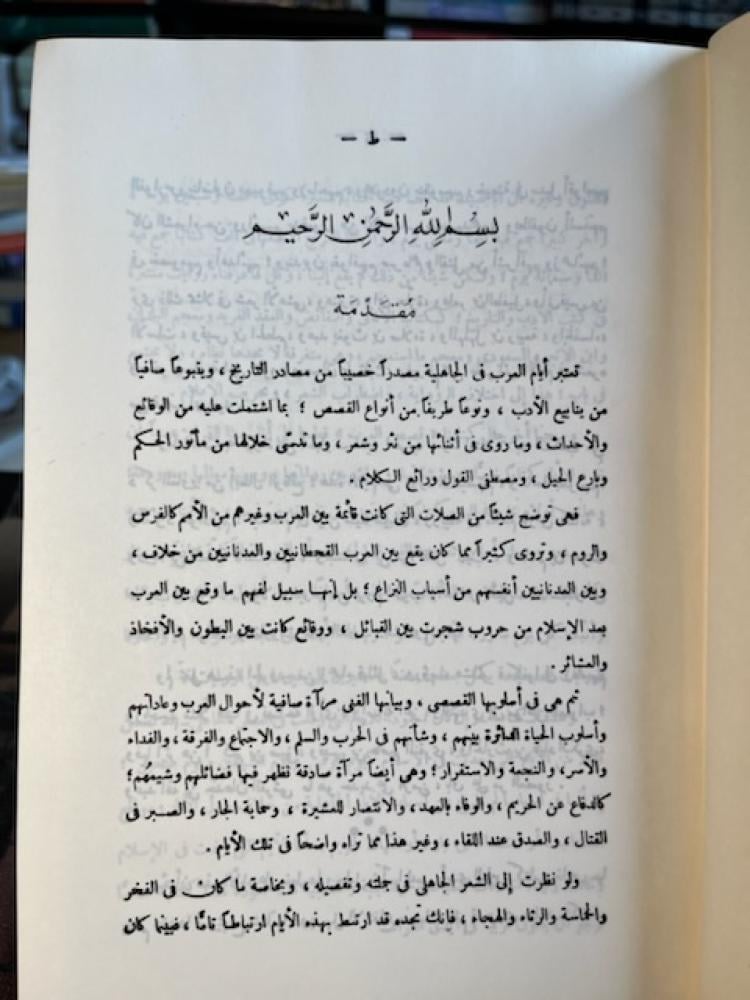 — ط —
بسم الله الرحمن الرحيم
مقدمة
تعتبر أيام العرب فى الجاهلية مصدراً خصيباً من مصادر التاريخ ، وينبوعاً صافياً
من ينابيع الأدب ، ونوعاً طريفاً من أنواع القصص ؛ بما اشتملت عليه من الوقائع
والأحداث ، وما روى فى أثنائها من نثر وشعر ، وما تدسّى خلالها من مأثور الحكم
وبارع الحيل ، ومصطفى القول ورائع الكلام .
فهى توضح شيئاً من الصلات التى كانت قائمة بين العرب وغيرهم من الأمم كالفرس
والروم ، وتروى كثيراً مما كان يقع بين العرب القحطانيين والعدنانيين من خلاف ،
وبين العدنانيين أنفسهم من أسباب النزاع ؛ بل إنها سبيل لفهم ما وقع بين العرب
بعد الإسلام من حروب شجرت بين القبائل ، ووقائع كانت بين البطون والأفخاذ
والعشائر .
ثم هى فى أسلوبها القصصى ، وبيانها الفنى مرآة صافية لأحوال العرب وعاداتهم
وأسلوب الحياة الدائرة بينهم ، وشأنهم فى الحرب والسلم ، والاجتماع والفرقة ، والفداء
والأسر ، والنجعة والاستقرار ؛ وهى أيضاً مرآة صادقة تظهر فيها فضائلهم وشيمُهم ؛
كالدفاع عن الحريم ، والوفاء بالعهد ، والانتصار للعشيرة ، وحماية الجار ، والصبر فى
القتال ، والصدق عند اللقاء ، وغير هذا مما تراه واضحاً فى تلك الأيام .
ولو نظرت إلى الشعر الجاهلى فى جملته وتفصيله ، وبخاصة ما كان فى الفخر
والحماسة والرثاء والهجاء ، فانك تجده قد ارتبط بهذه الأيام ارتباطاً تامًّا ، فبينما كان